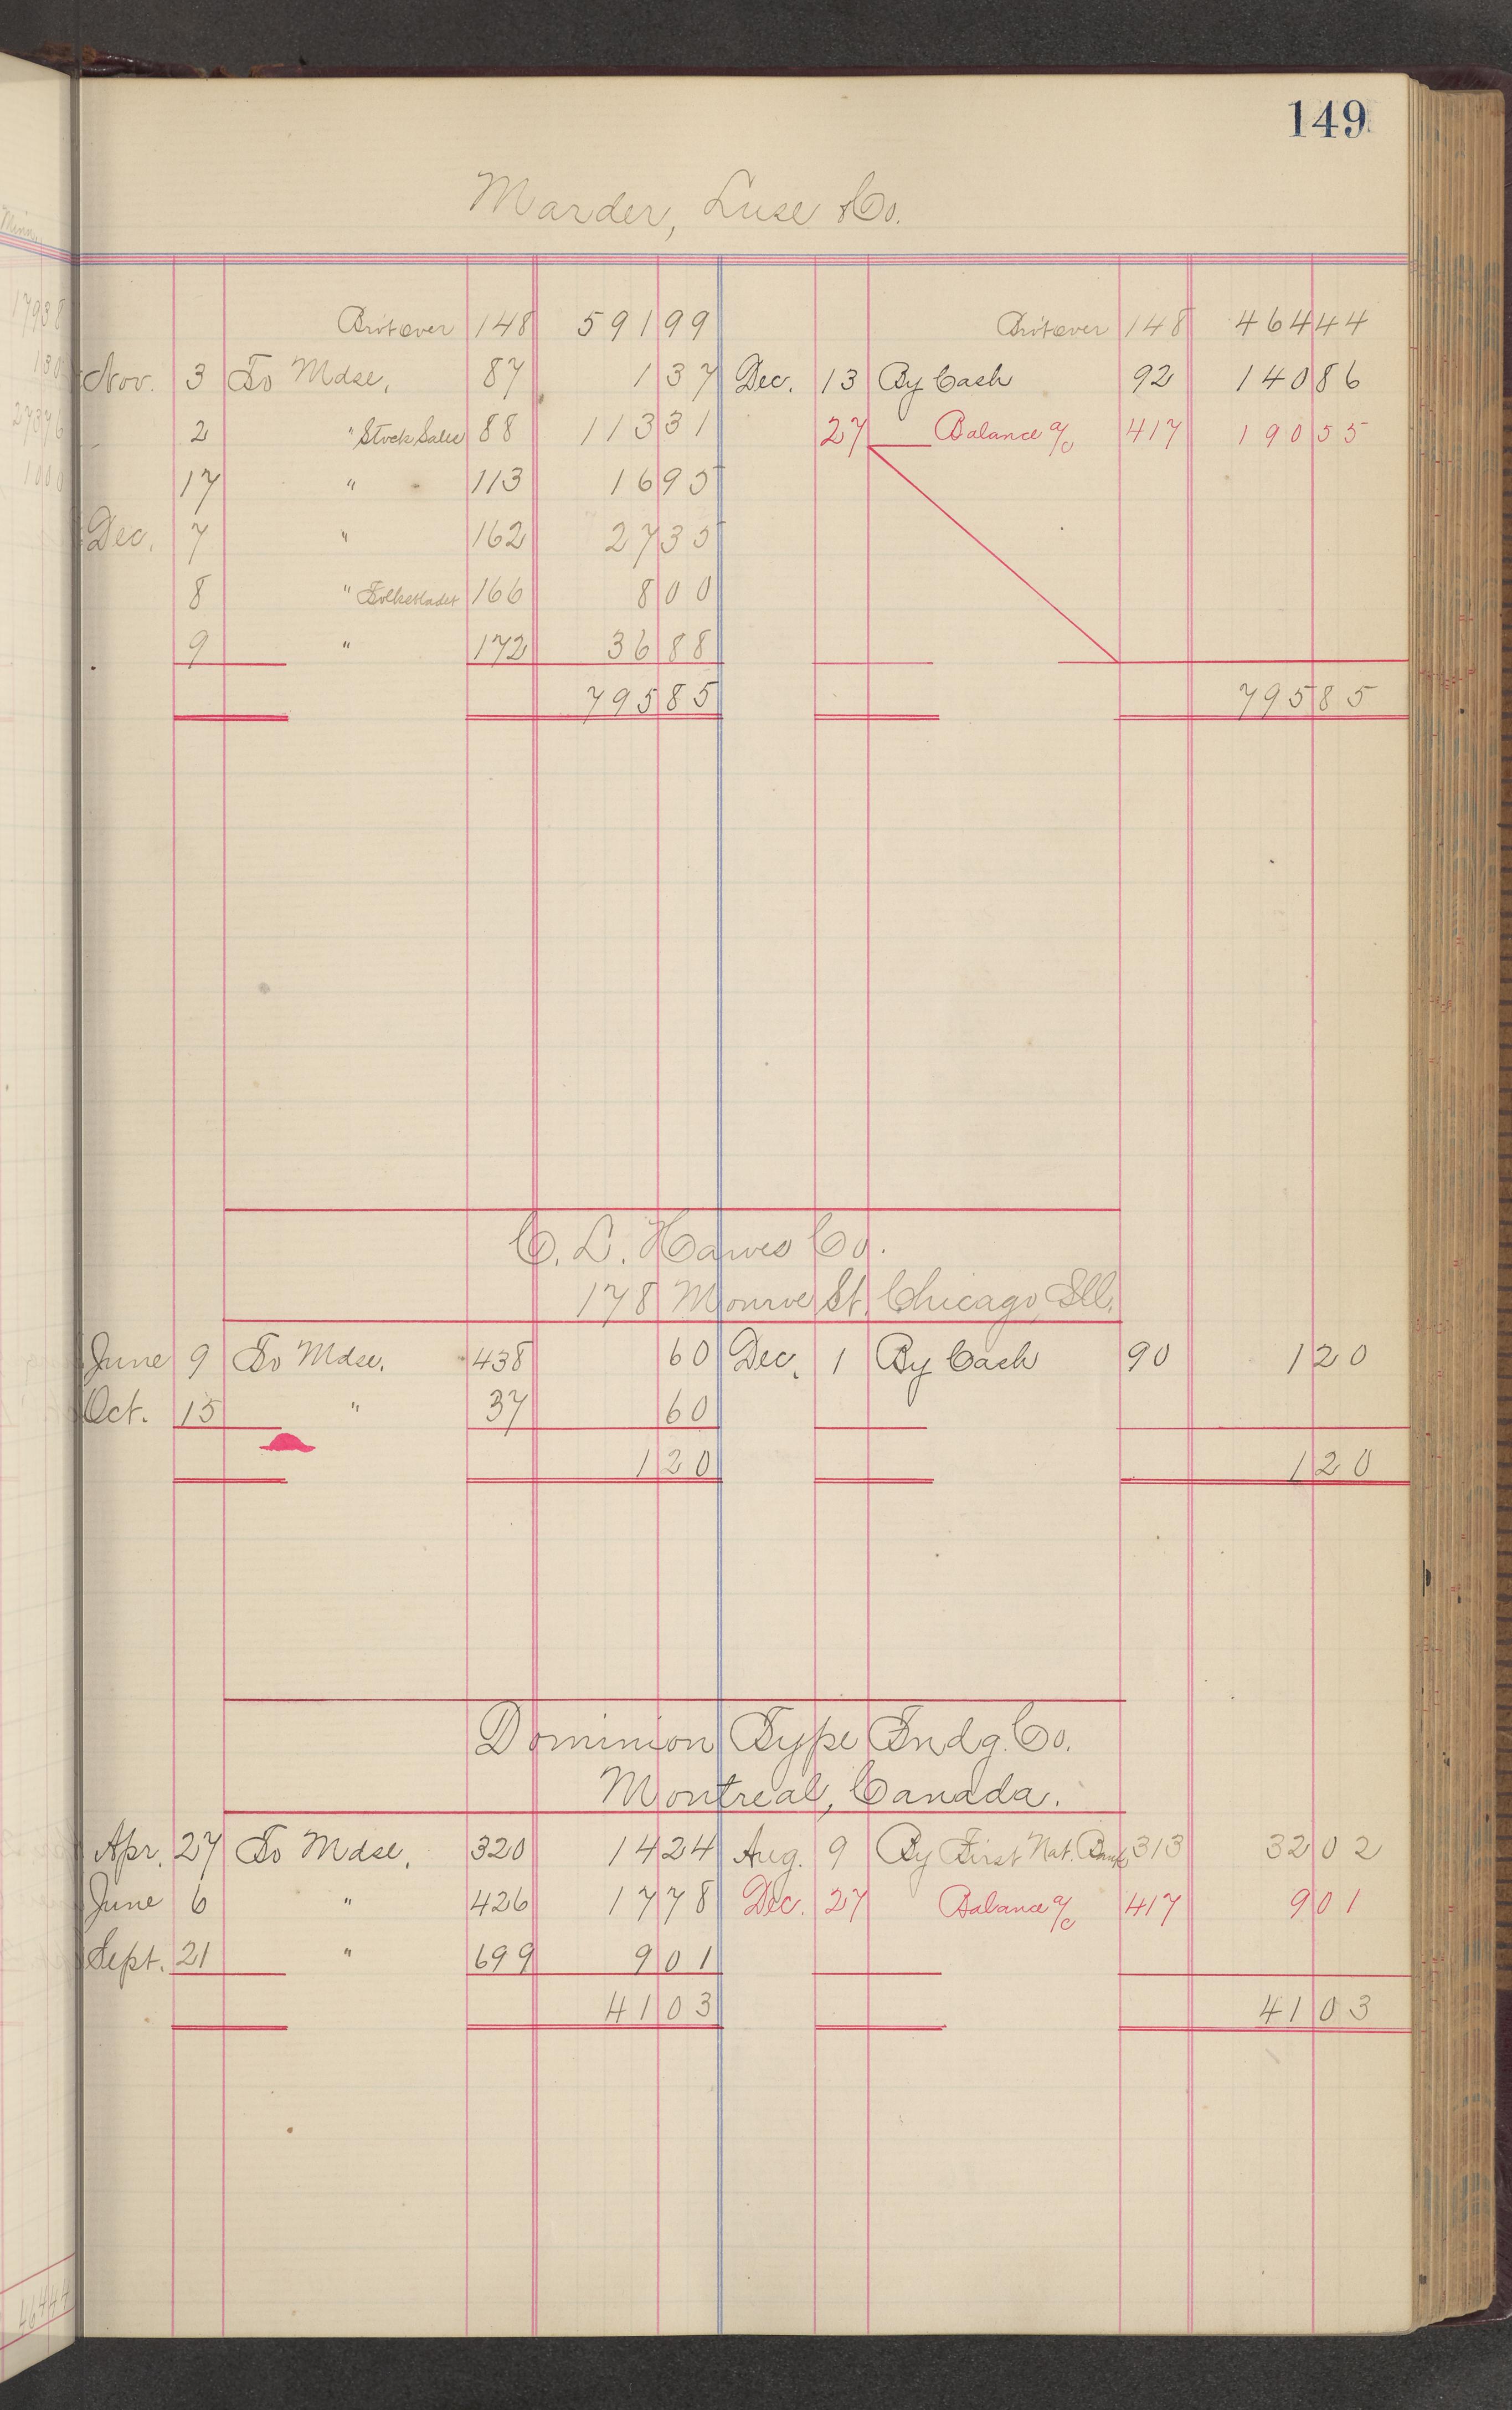 149
Marder, Luse & Co.
Brôt over 148 591 99 Brôt over 148 464 44
Nov. 3 To Mdse, 87 1 37 Dec. 13 By Cash 92 140 86
2 " Stock Sales 88 113 31 27 Balance a/c 417 190 55
17 " 113 16 95
Dec. 7 " 162 27 35
8 " 166 8 00
9 " 172 36 88
795 85 795 85
C. L. Hawes Co.
178 Monroe St. Chicago, Ill.
June 9 To Mdse. 438 60 Dec. 1 By Cash 90 1 20
Oct. 15 " 37 60
1 20 1 20
Dominion Type Fndg. Co.
Montreal, Canada.
Apr. 27 To Mdse. 320 14 24 Aug. 9 By First Nat. Bank 313 32 02
June 6 " 426 17 78 Dec. 27 Balance a/c 417 9 01
Sept. 21 " 699 9 01
41 03 41 03